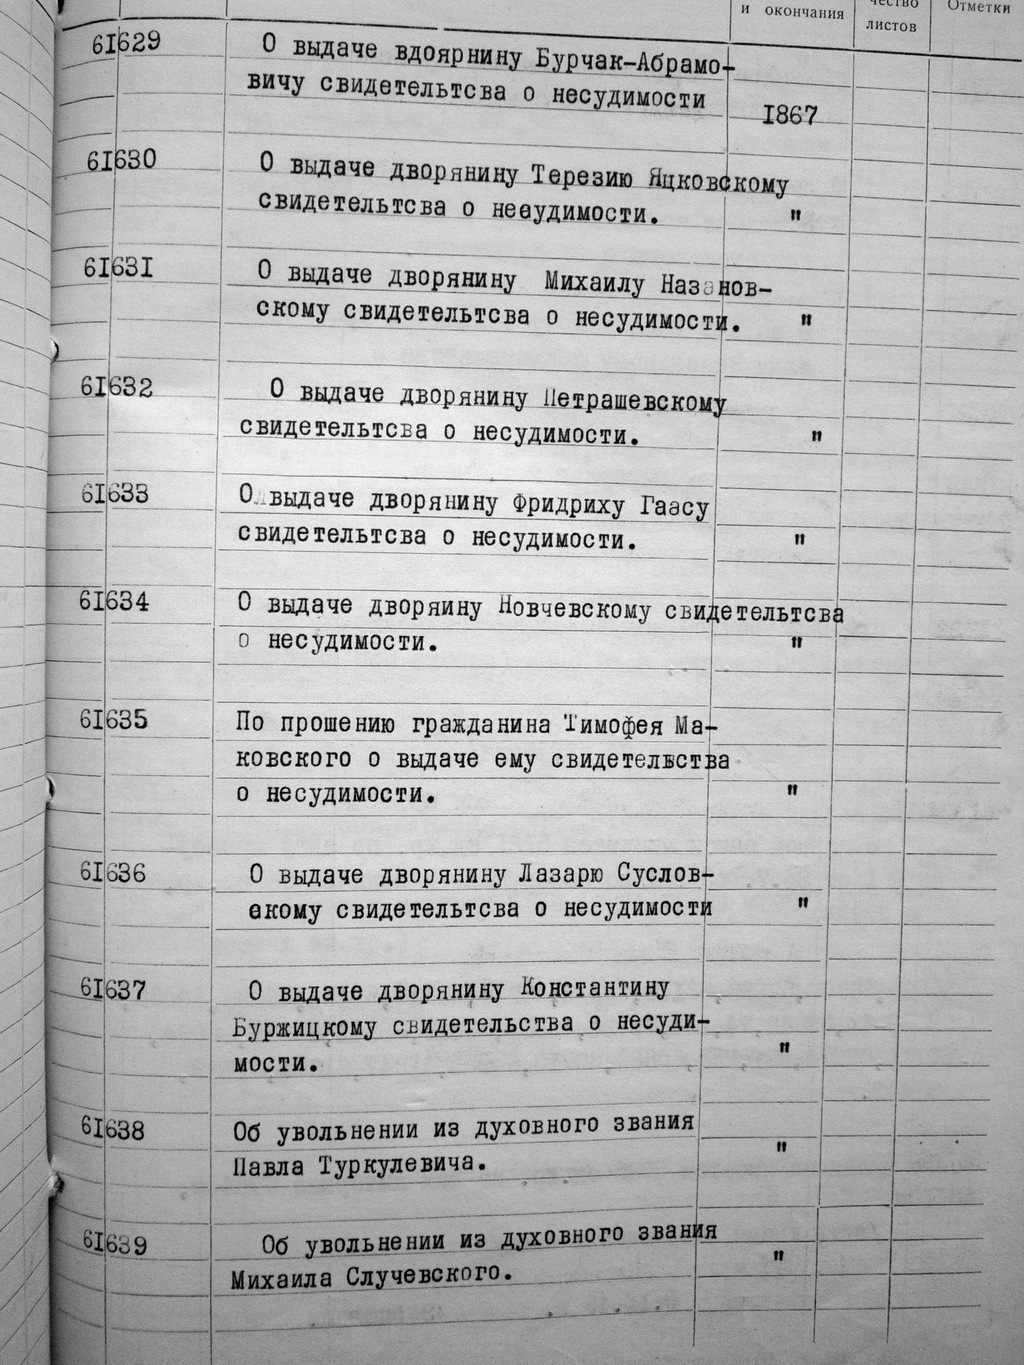 и окончания
чество
листов
Отметки
61629 О выдаче вдоярнину Бурчак-Абрамо-
вичу свидетельтсва о несудимости
1867
61630 О выдаче дворянину Терезию Яцковскому
свидетельтсва о несудимости. "
61631 О выдаче дворянину Михаилу Назанов-
скому свидетельтсва о несудимости. "
61632 О выдаче дворянину Петрашевскому
свидетельтсва о несудимости. "
61633 О выдаче дворянину Фридриху Гаасу
свидетельтсва о несудимости. "
61634 О выдаче дворяину Новчевскому свидетельтсва
о несудимости. "
61635 По прошению гражданина Тимофея Ма-
ковского о выдаче ему свидетельства
о несудимости. "
61636 О выдаче дворянину Лазарю Суслов-
скому свидетельтсва о несудимости "
61637 О выдаче дворянину Константину
Буржицкому свидетельства о несуди-
мости. "
61638 Об увольнении из духовного звания
Павла Туркулевича. "
61639 Об увольнении из духовного звания
Михаила Случевского. "